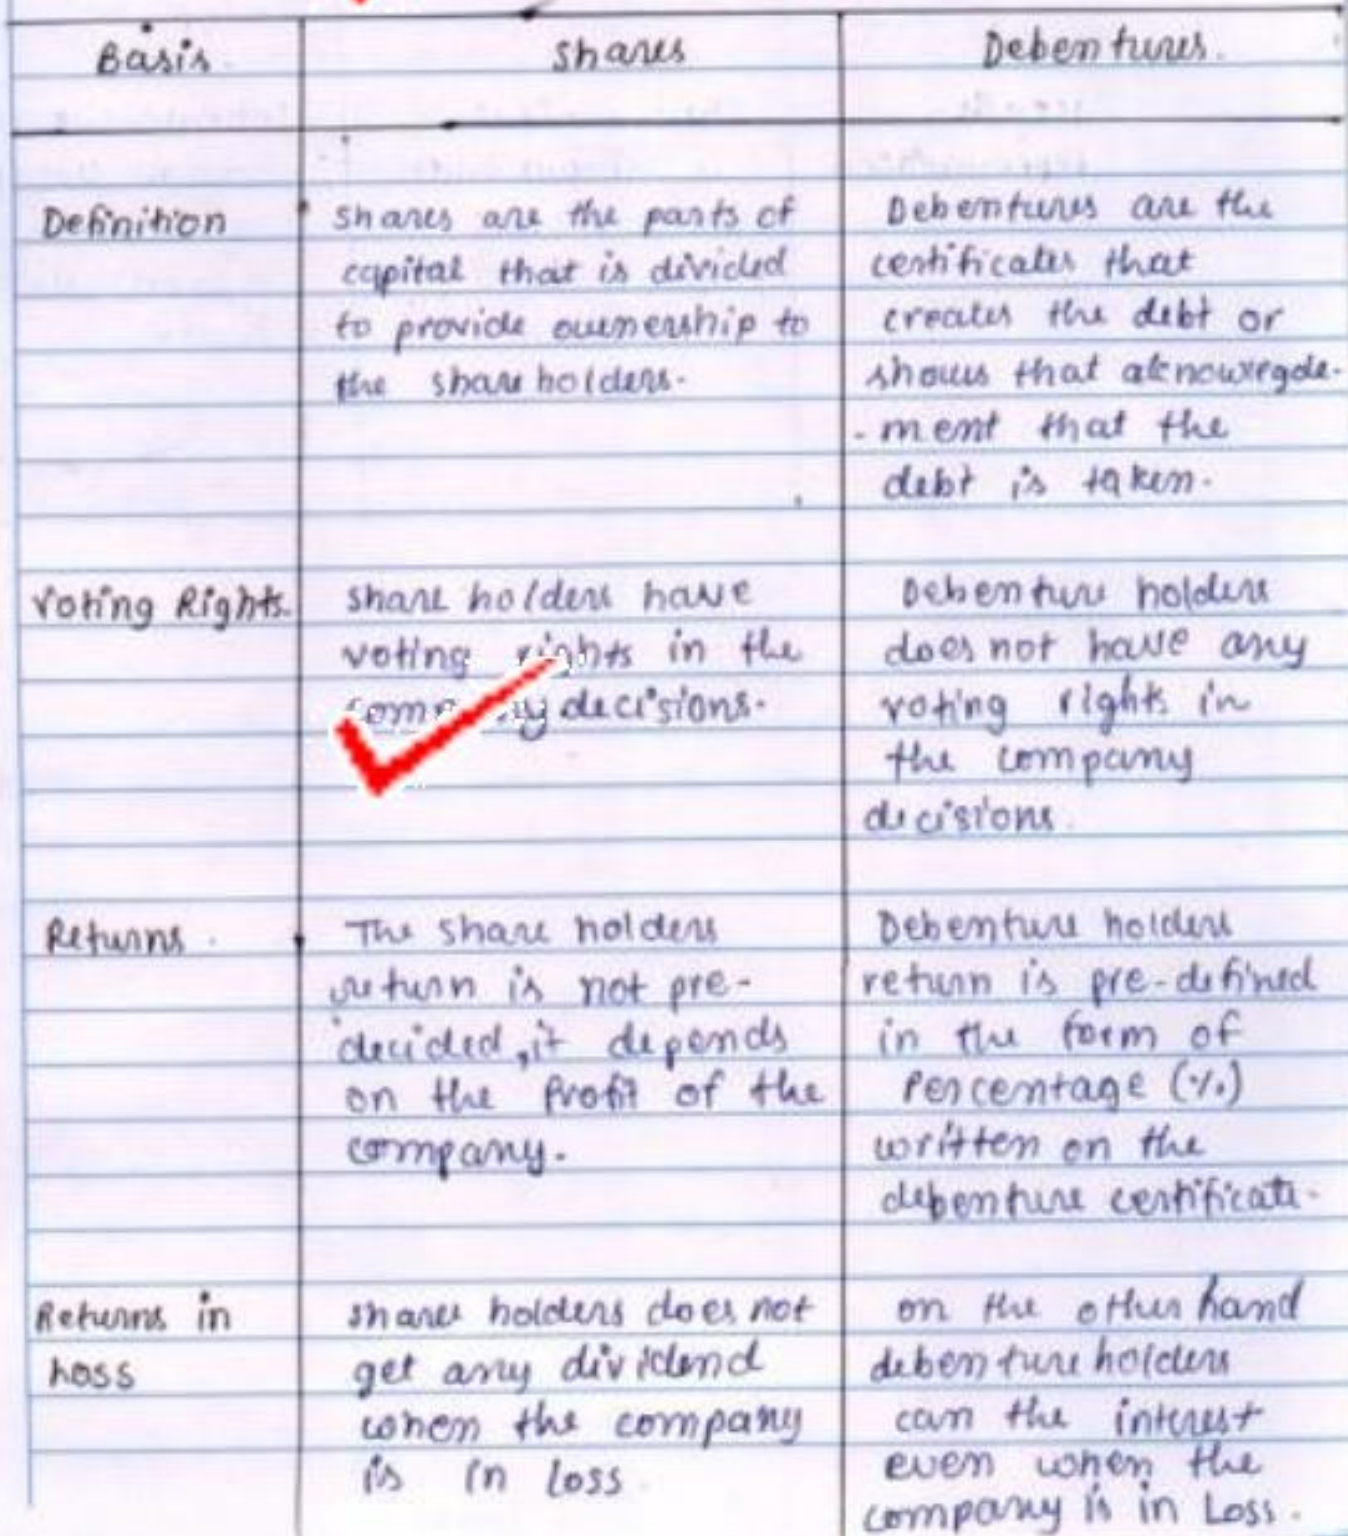 Basis.
Shares
Debentures.
Definition
Shares are the parts of
capital that is divided
to provide ownership to
the share holders.
Debentures are the
certificates that
creates the debt or
shows that
-ment that the
debt is taken.
Voting Rights.
Share holders have
voting rights in the
company decisions.
Debenture holders
does not have any
voting rights in
the company
decisions.
Returns.
The share holders
return is not pre-
decided, it depends
on the profit of the
company.
Debenture holders
return is pre-defined
in the form of
Percentage (%)
written on the
debenture certificate.
Returns in
Loss
Share holders does not
get any dividend
when the company
is in Loss.
on the other hand
debenture holders
can the interest
even when the
company is in Loss.